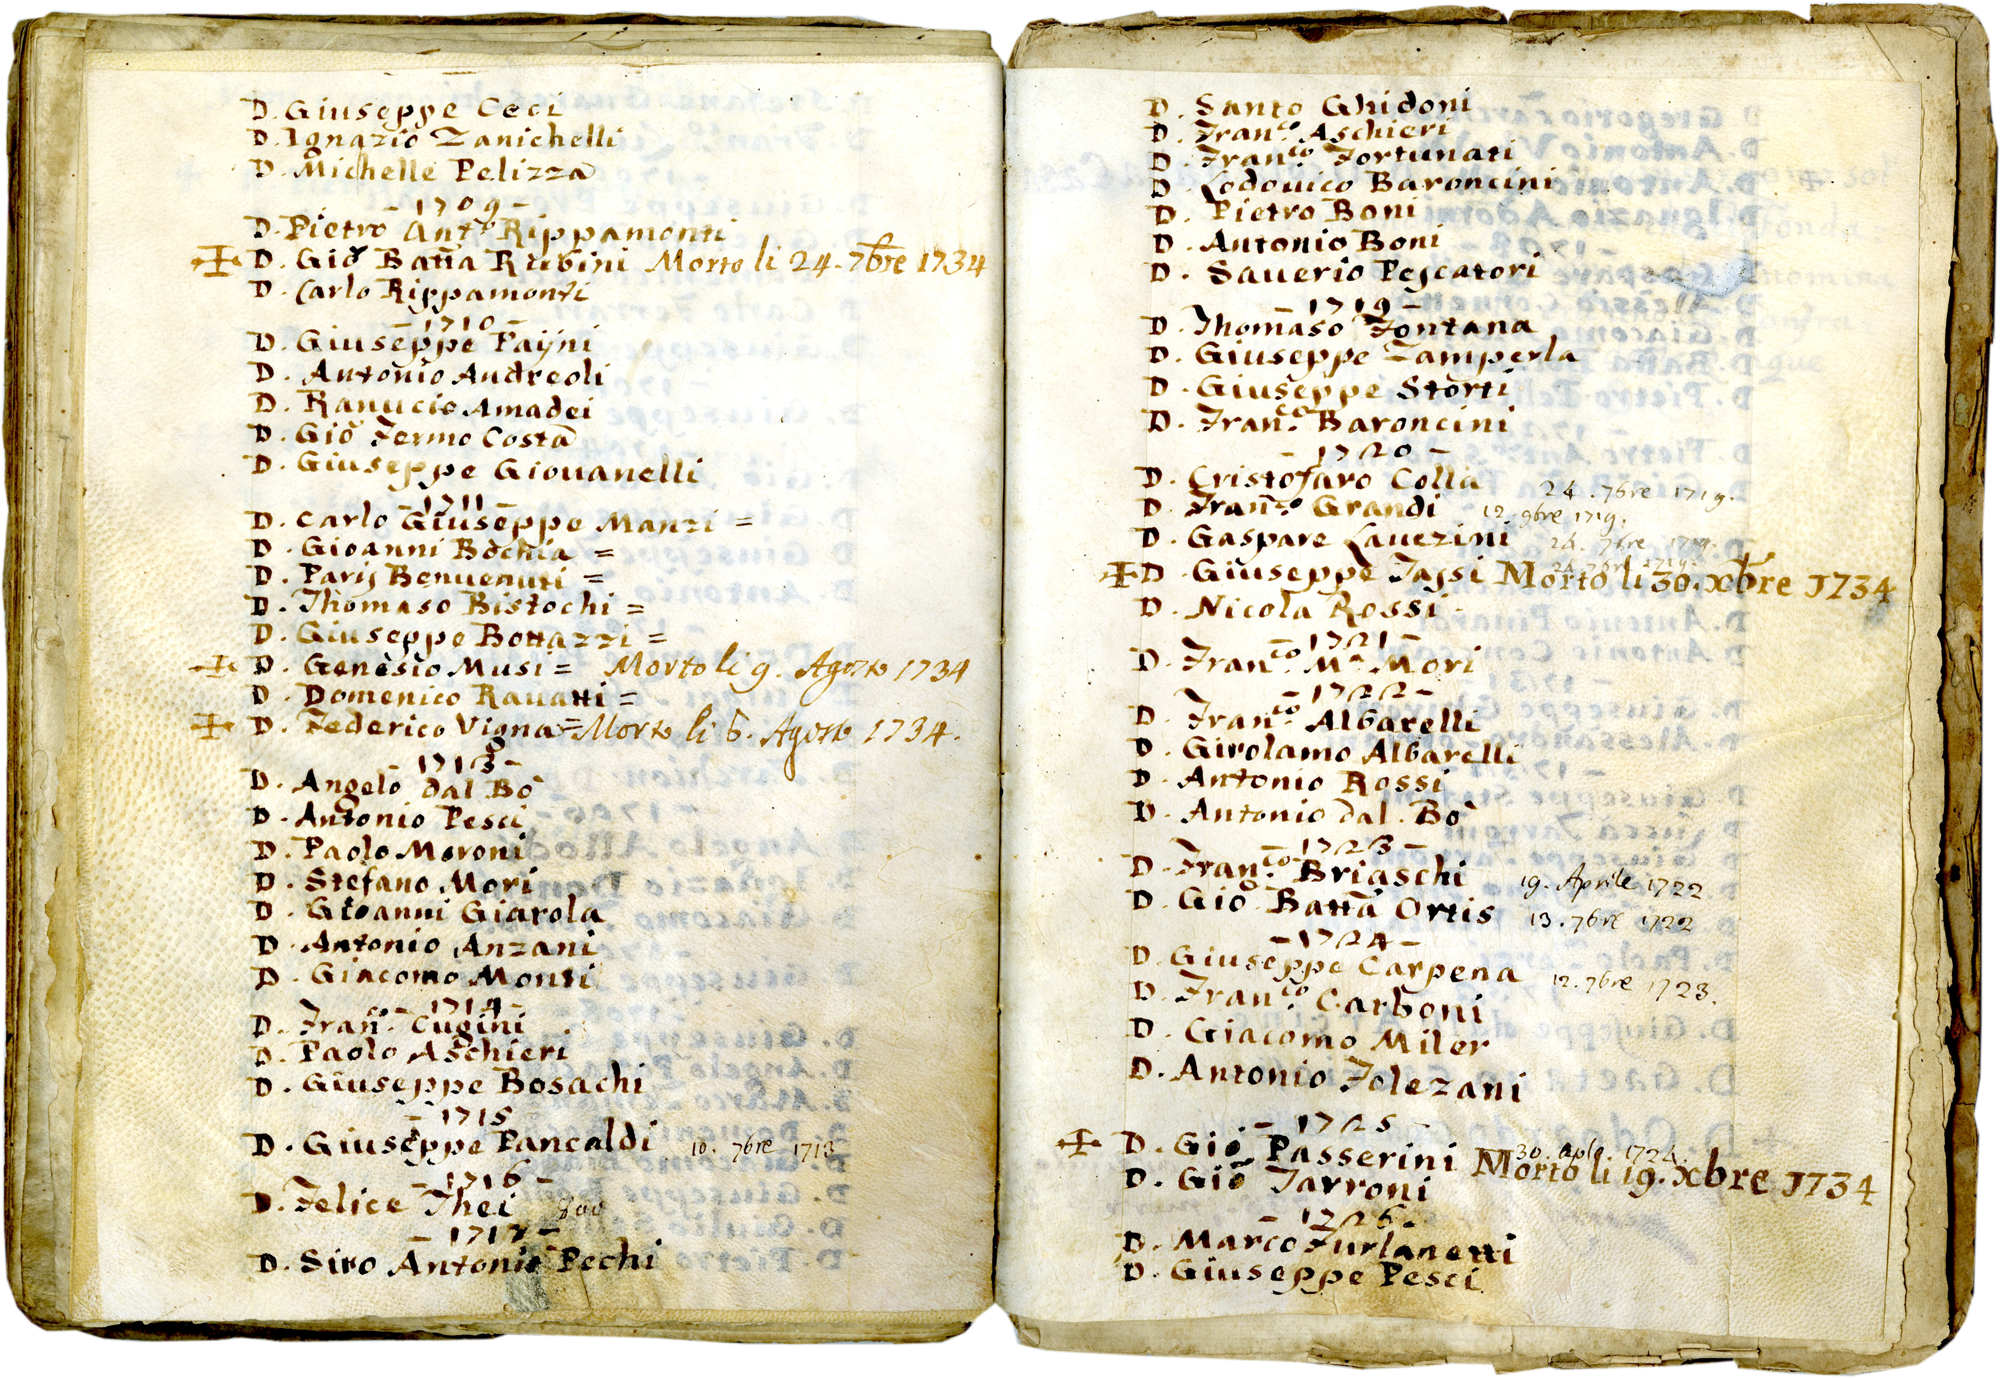 D. Giuseppe Ceci
D. Ignazio Zanichelli
D. Michelle Pelizza
- 1709 -
D. Pietro Ant.o Rippamonti
D. Gio Batta Rubini Morto li 24. 7bre 1734
D. Carlo Rippamonti
- 1710 -
D. Giuseppe Paijni
D. Antonio Andreoli
D. Ranucio Amadei
D. Gio Fermo Costa
D. Giuseppe Giouanelli
- 1711 -
D. Carlo Giuseppe Manzi =
D. Gioanni Bochia =
D. Parij Benuenuti =
D. Thomaso Bistochi =
D. Giuseppe Bottazzi =
D. Genesio Musi = Morto li 9. Agosto 1734
D. Domenico Rauatti =
D. Federico Vigna = Morto li 6. Agosto 1734.
- 1713 -
D. Angelo dal Bo
D. Antonio Pesci
D. Paolo Moroni
D. Stefano Mori
D. Gioanni Giarola
D. Antonio Anzani
D. Giacomo Monti
- 1714 -
D. Fran.co Cugini
D. Paolo Aschieri
D. Giuseppe Bosachi
- 1715 -
D. Giuseppe Pancaldi 10. 7bre 1713
- 1716 -
D. Felice Thei
- 1717 -
D. Siro Antonio Pechi
D. Santo Ghidoni
D. Fran.co Aschieri
D. Fran.co Fortunati
D. Lodouico Baroncini
D. Pietro Boni
D. Antonio Boni
D. Sauerio Pescatori
- 1719 -
D. Thomaso Fontana
D. Giuseppe Zamperla
D. Giuseppe Storti
D. Fran.co Baroncini
- 1720 -
D. Cristofaro Colla 24. 7bre 1719.
D. Fran.co Grandi 12. 9bre 1719.
D. Gaspare Lauezini 24. 7bre 1719.
D. Giuseppe Tassi 24. 7bre 1719. Morto li 30. xbre 1734
D. Nicola Rossi
- 1721 -
D. Fran.co M.a Mori
- 1722 -
D. Fran.co Albarelli
D. Girolamo Albarelli
D. Antonio Rossi
D. Antonio dal. Bo
- 1723 -
D. Fran.co Briaschi 19. Aprile 1722
D. Gio Batta Ortis 13. 7bre 1722
- 1724 -
D. Giuseppe Carpena 12. 7bre 1723.
D. Fran.co Carboni
D. Giacomo Miler
D. Antonio Tolezani
- 1725 -
D. Gio Passerini 30. Aple. 1724. Morto li 19. xbre 1734
D. Gio Tarroni
- 1726 -
D. Marco Furlanetti
D. Giuseppe Pesci